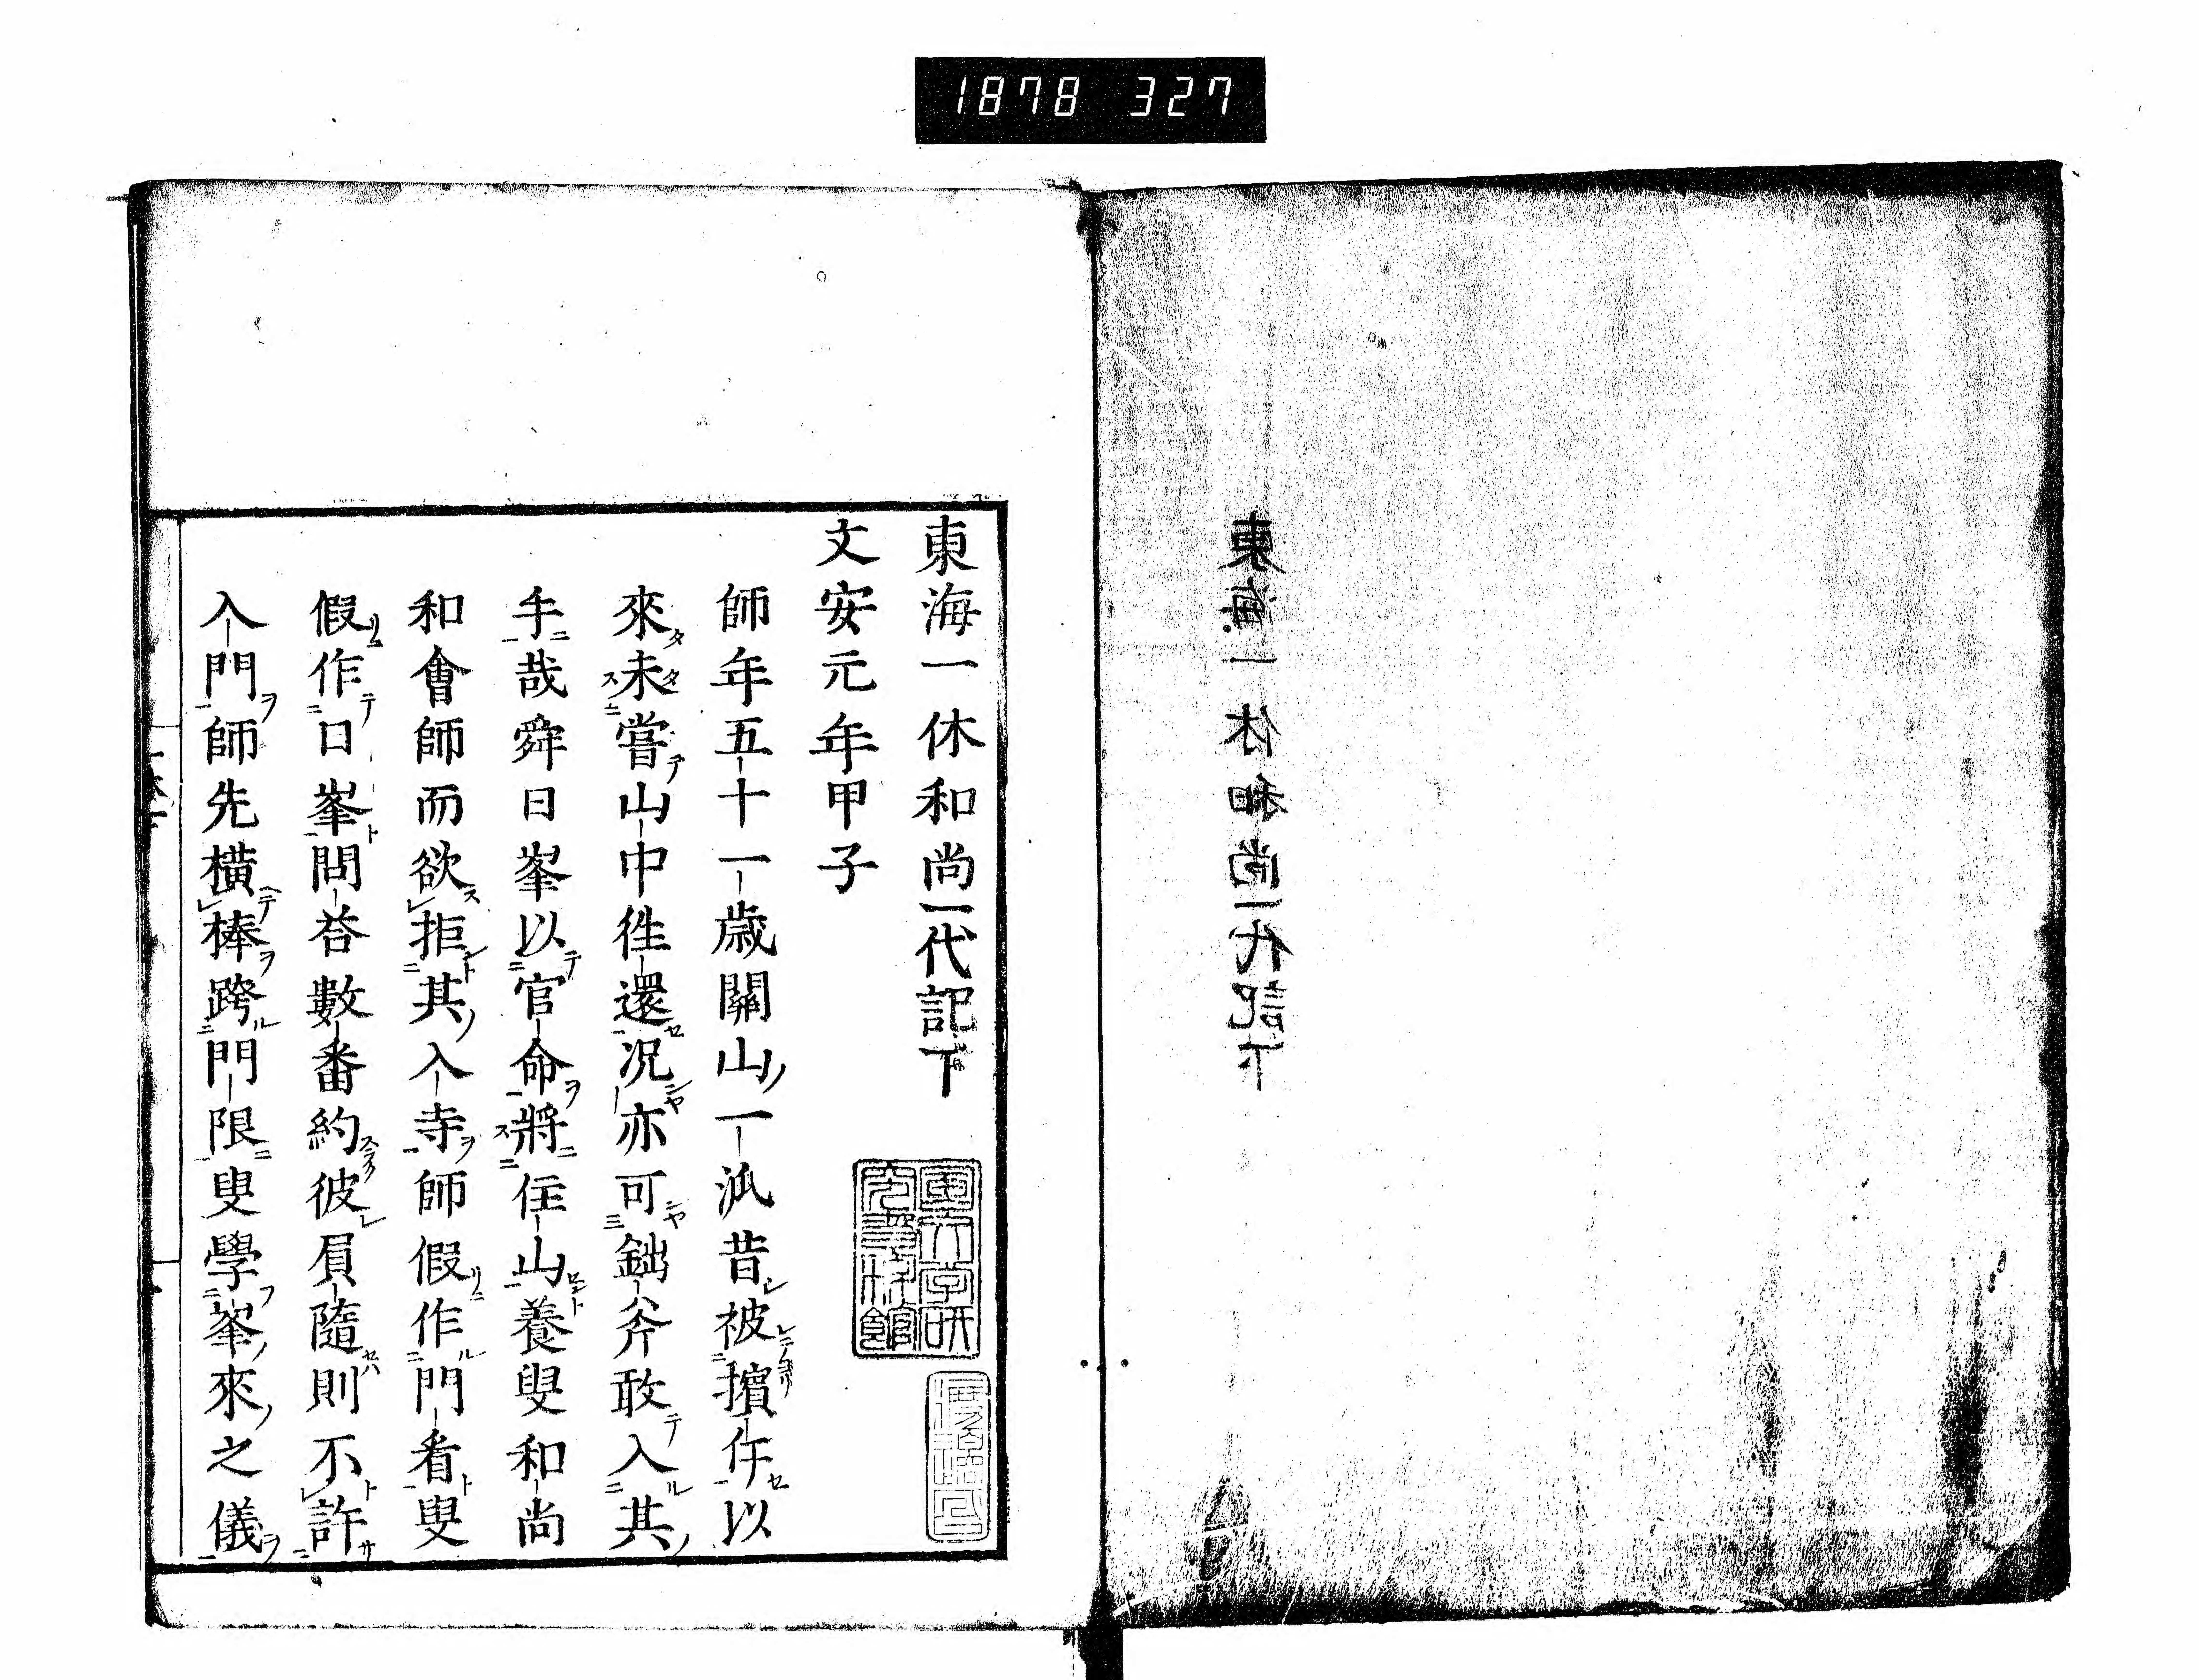 1878 327
東海一休和尚一代記下
文安元年甲子
師年五十一歳關山一派昔被擯斥以
來未嘗山中徃還况亦可鈯斧敢入其
手哉舜日峯以官命將住山養叟和尚
和會師而欲拒其入寺師假作門看叟
假作日峯問答數番約彼員隨則不許
入門師先橫棒跨門限叟學峯來之儀
東海一休和尚一代記下